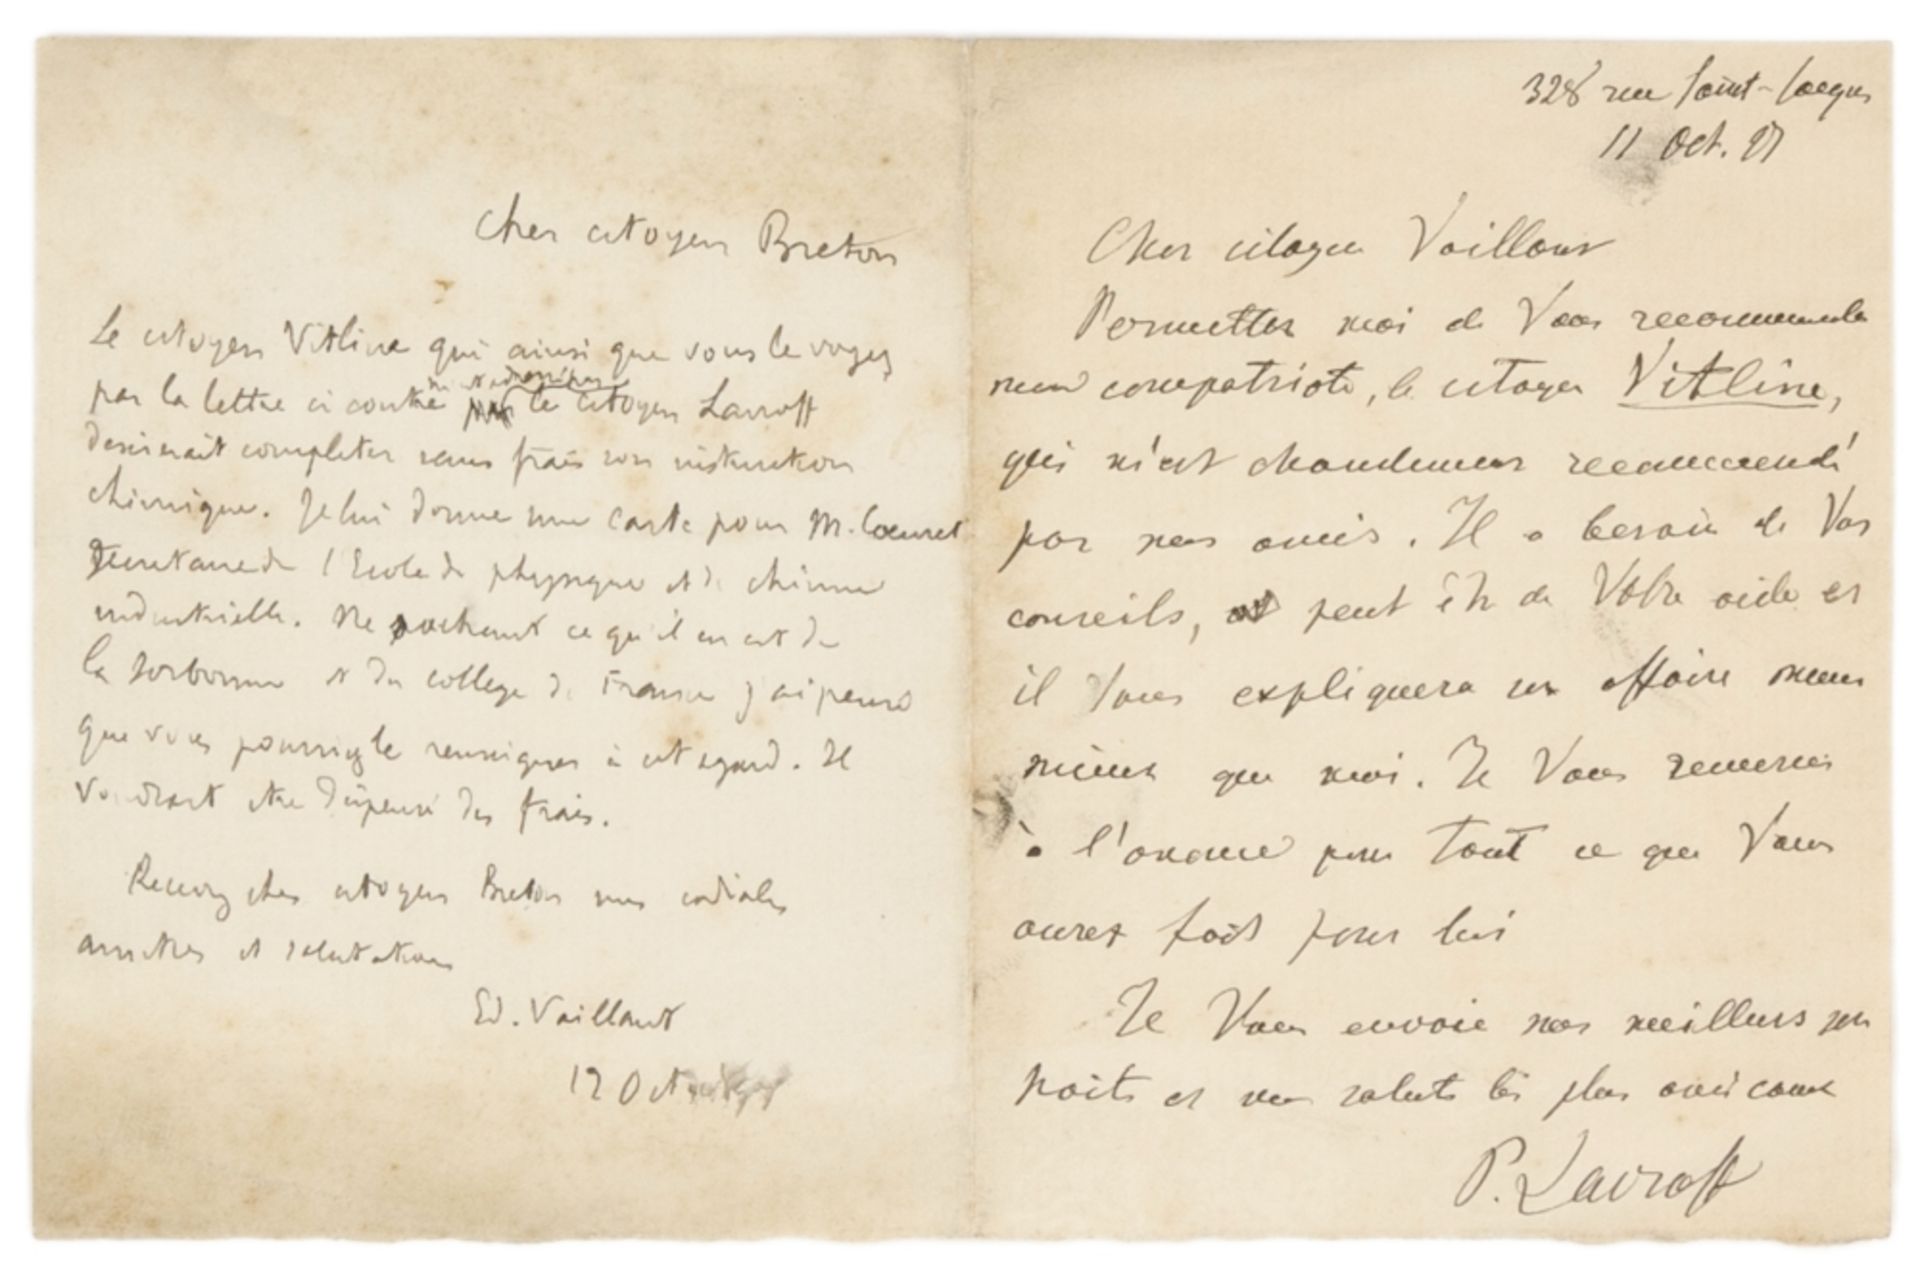 Cher citoyen Breton
Le citoyen Vitline qui ainsi que vous le voyez
par la lettre ci contre le citoyen Lavroff
desirerait completer sans frais son instruction
chimique. Je lui donne une carte pour M.
Secretaire de l'Ecole de physique et de chimie
industrielle. Ne sachant ce qu'il en est de
la Sorbonne et du college de France j'ai pensé
que vous pourriez le renseigner à cet egard. Il
voudrait etre dispensé des frais.
Recevez cher citoyen Breton mes cordiales
amities et salutations
Ed. Vaillant
12 Oct
328 rue Saint-Jacques
11 Oct.
Cher citoyen Vaillant
Permettez moi de Vous recommander
mon compatriote, le citoyen Vitline,
qui m'est chaudement recommandé
par mes amis. Il a besoin de Vos
conseils, et peut être de Votre aide et
il Vous expliquera son affaire mieux
que moi. Je Vous remercie
à l'avance pour tout ce que Vous
aurez fait pour lui
Je Vous envoie mes meilleurs sou
haits et mes saluts les plus amicaux
P. Lavroff